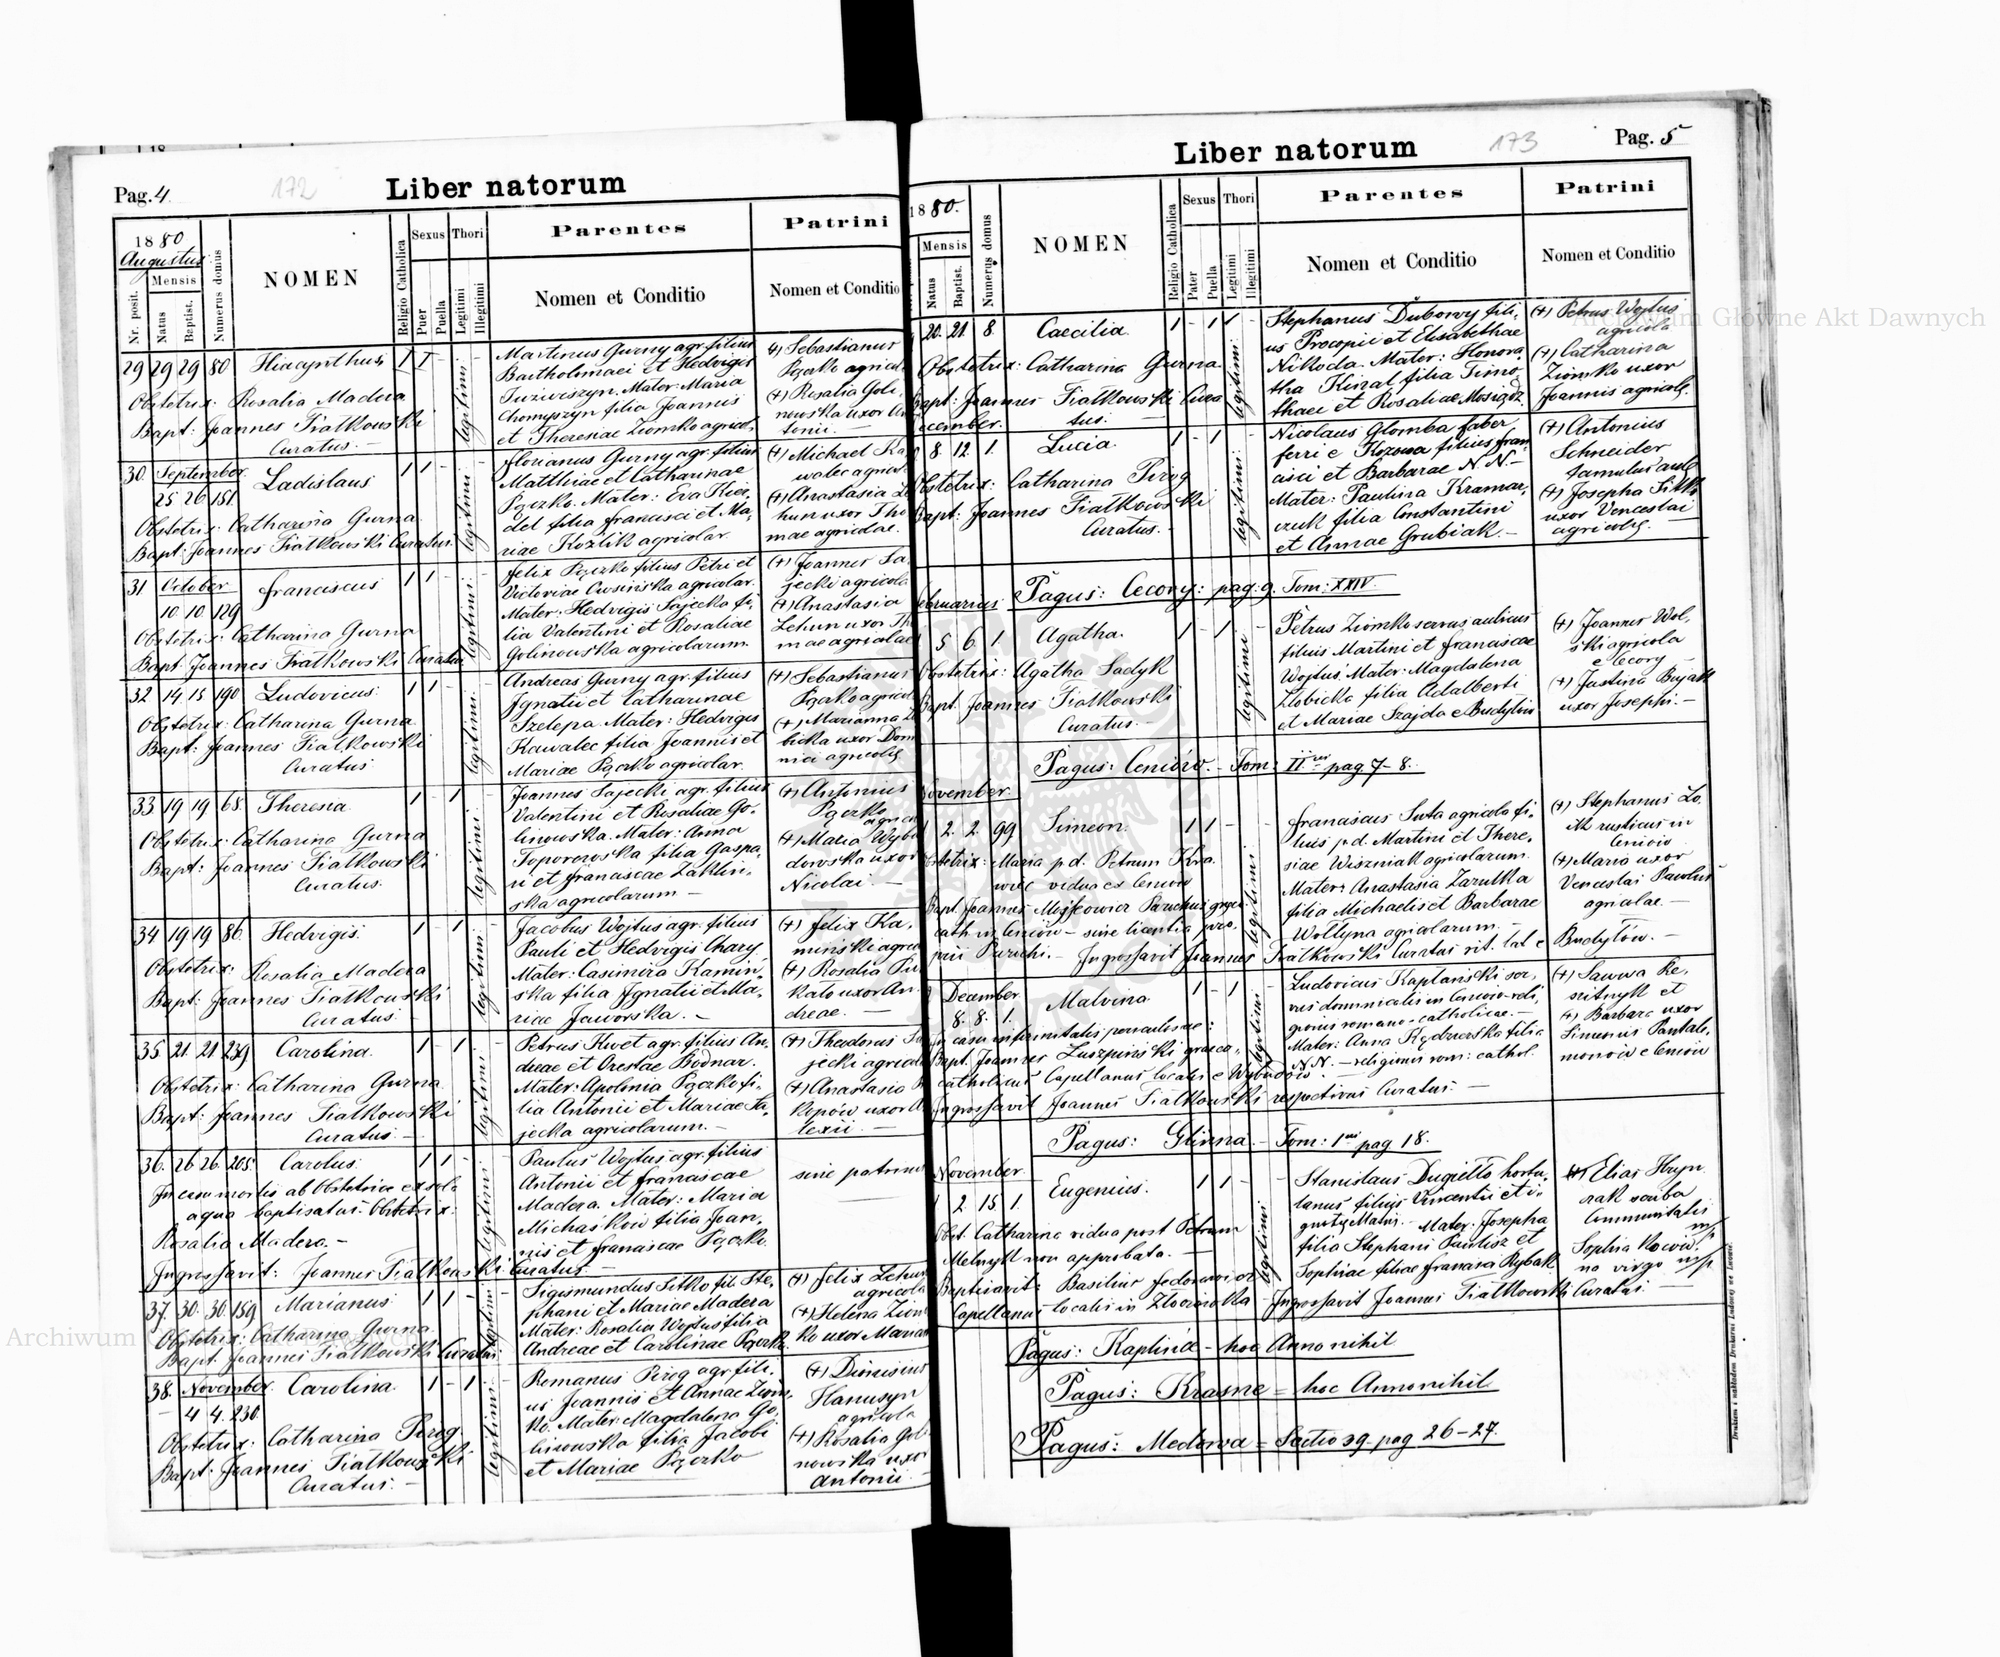 Pag. 4.
172
Liber natorum
1880
Augustus
Nr. posit.
Mensis
Natus
Baptist.
Numerus domus
NOMEN
Religio Catholica
Sexus
Puer
Puella
Thori
Legitimi
Illegitimi
Parentes
Nomen et Conditio
Patrini
Nomen et Conditio
29 29 29 80 Hiacynthus 1 1 -
Obstetrix: Rosalia Madera
Bapt: Joannes Fiałkowski
Curatus. —
legitimi
Martinus Gurny agr. filius
Bartholomaei et Hedvigis
Mater: Maria
Chomyszyn filia Joannis
et Theresiae Ziomko agricol.
(+) Sebastianus
Pączko agricol
(+) Rosalia Goli
nowska uxor An
tonii. —
30. September
25 26 151. Ladislaus 1 1 -
Obstetrix: Catharina Gurna
Bapt: Joannes Fiałkowski Curatus.
legitimi
Florianus Gurny agr. filius
Matthiae et Catharinae
Pączko. Mater: Eva Kier
del filia Francisci et Ma
riae Kozlik agricolar.
(+) Michael Ka
walec agricol
(+) Anastasia Le
hun uxor Tho
mae agricolae.
31 October
10 10 129 Franciscus 1 1 -
Obstetrix: Catharina Gurna
Bapt: Joannes Fiałkowski Curatus
legitimi
Felix Pączko filius Petri et
Victoriae Cusińska agricolar.
Mater: Hedvigis Sajecka fi
lia Valentini et Rosaliae
Golinowska agricolarum.
(+) Joannes Sa
jecki agricola
(+) Anastasia
Lehun uxor Th
mae agricolae
32 14 15 190 Ludovicus 1 1 -
Obstetrix: Catharina Gurna
Bapt: Joannes Fiałkowski
Curatus
legitimi
Andreas Gurny agr. filius
Ignatii et Catharinae
Szelepa. Mater: Hedvigis
Kawalec filia Joannis et
Mariae Pączko agricolar.
(+) Sebastianus
Pączko agricol
(+) Marianna Z
bicka uxor Dom
nici agricolę
33 19 19 68. Theresia 1 - 1
Obstetrix: Catharina Gurna
Bapt: Joannes Fiałkowski
Curatus.
legitimi
Joannes Sajecki agr. filius
Valentini et Rosaliae Go
linowska. Mater: Anna
Toporowska filia Gaspa
ri et Franciscae Zaklin
ska agricolarum —
(+) Antonius
Pączko
agricol
(+) Maria Wybu
dowska uxor
Nicolai. —
34 19 19 86. Hedvigis. 1 - 1
Obstetrix: Rosalia Madera
Bapt: Joannes Fiałkowski
Curatus.
legitimi
Jacobus Wojtus agr. filius
Pauli et Hedvigis Chary,
Mater: Casimira Kamin
ska filia Ignatii et Ma
riae Jaworska. —
(+) Felix Ka
minski agric
(+) Rosalia Pu
kało uxor An
dreae. —
35 21 21 239 Carolina. 1 - 1
Obstetrix: Catharina Gurna
Bapt: Joannes Fiałkowski
Curatus —
legitimi
Petrus Kwet agr. filius An
dreae et Orestae Bodnar.
Mater: Apolinia Pączko fi
lia Antonii et Mariae Sa
jecka agricolarum. —
(+) Theodorus Sa
jecki agricola
(+) Anastasia
Kepow uxor A
lexii —
36. 26 26. 205. Carolus. 1 1 -
In casu mortis ab Obstetrice ex sola
aqua baptisatus. Obstetrix:
Rosalia Madera. —
Ingrossavit: Joannes Fiałkowski Curatus —
legitimi
Paulus Wojtus agr. filius
Antonii et Franciscae
Madera. Mater: Maria
Michaśkow filia Joan
nis et Franciscae Pączko.
sine patrinis
37. 30. 30. 159 Marianus 1 1 -
Obstetrix: Catharina Gurna
Bapt: Joannes Fiałkowski Curatus
legitimi
Sigismundus Sitko fil. Ste
phani et Mariae Madera
Mater: Rosalia Wojtus filia
Andreae et Carolinae Pączko.
(+) Felix Lehun
agricola
(+) Helena Ziom
ko uxor Marian
38. November Carolina. 1 - 1
4 4. 230.
Obstetrix: Catharina Pirog
Bapt: Joannes Fiałkowski
Curatus. —
legitimi
Romanus Pirog agr. fili
us Joannis et Annae Ziom
ko. Mater: Magdalena Go
linowska filia Jacobi
et Mariae Pączko
(+) Dionisius
Hanusyn
agricola
(+) Rosalia Goli
nowska uxor
Antonii —
Liber natorum
173
Pag. 5
1880.
Mensis
Natus
Baptist.
Numerus domus
NOMEN
Religio Catholica
Sexus
Puer
Puella
Thori
Legitimi
Illegitimi
Parentes
Nomen et Conditio
Patrini
Nomen et Conditio
20. 21. 8. Caecilia. 1 - 1 1 -
Obstetrix: Catharina Gurna
Bapt: Joannes Fiałkowski Cura
tus. —
legitimi
Stephanus Dubowy fili
us Procopii et Elisabethae
Nikoda. Mater: Honora
tha Kinal filia Timo
thaei et Rosaliae Mosiądz.
(+) Petrus Wojtus
agricola
(+) Catharina
Ziomko uxor
Joannis agricolę.
ecember.
8. 12. 1. Lucia. 1 - 1
Obstetrix: Catharina Pirog
Bapt: Joannes Fiałkowski
Curatus. —
legitimi
Nicolaus Glomba faber
ferri e Kozowa filius Fran
cisci et Barbarae N. N. —
Mater: Paulina Kramar
czuk filia Constantini
et Annae Grubiak. —
(+) Antonius
Schneider
famulus aulę
(+) Josepha Sitko
uxor Venceslai
agricolę. —
Pagus: Cecory: pag: 9. Tom: XXIV.
Februarius
5 6 1. Agatha. 1 - 1
Obstetrix: Agatha Sadyk
Bapt. Joannes Fiałkowski
Curatus. —
legitimi
Petrus Ziomko servus aulicus
filius Martini et Franciscae
Wojtus. Mater: Magdalena
Złobicka filia Adalberti
et Mariae Szajda e Budyłow
(+) Joannes Wol
ski agricola
e Cecory —
(+) Justina Bujak
uxor Josephi. —
Pagus: Ceniów. — Tom: II us pag 7-8.
November.
2. 2. 99 Simeon. 1 1 -
Obstetrix: Maria p.d. Petrum Kra
wiec vidua ex Ceniow
Bapt. Joannes Mojseowicz Parochus graeci
cath in Ceniów — sine licentia pro
prii Parochi. — Ingrossavit Joannes Fiałkowski Curatus rit. lat e Budyłów. —
legitimi
Franciscus Suta agricola fi
lius p.d. Martini et There
siae Wiszniak agricolarum.
Mater: Anastasia Zarutka
filia Michaelis et Barbarae
Wołtyna agricolarum. —
(+) Stephanus Lo
ik rusticus in
Ceniow
(+) Maria uxor
Venceslai Pawlus
agricolae. —
December
8. 8. 1. Malvina 1 - 1
In casu infirmitatis periculosae:
Bapt. Joannes Łuszpiński graeco
catholicus Capellanus localis e Wybudow.
Ingrossavit Joannes Fiałkowski respectivus Curatus. —
legitimi
Ludovicus Kaplański ser
vus dominicalis in Ceniow reli
gionis romano-catholicae. —
Mater: Anna Kędzierska filia
N.N. — religionis rom: cathol.
(+) Sawwa Re
szitnyk et
(+) Barbara uxor
Simeonis Pantale
monow e Ceniow
Pagus: Glinna. — Tom: 1 us pag 18.
November
2. 15. 1. Eugenius. 1 1 -
Obst. Catharina vidua post Petrum
Melnyk non approbata. —
Baptisavit: Basilius Fedorowicz
Capellanus localis in Złoczowka — Ingrossavit Joannes Fiałkowski Curatus. —
legitimi
Stanislaus Dugiełło hortu
lanus filius Vincentii et i
gnotę Matris. — Mater: Josepha
filia Stephani Paulisz et
Sophiae filiae Francisci Rybak
(+) Elias Hryn
czak scriba
Communitatis
m/p
Sophia Nowiń
na virgo m/p.
Pagus: Kaplińce — hoc Anno nihil
Pagus: Krasne = hoc Anno nihil
Pagus: Medowa = Sectio 29. pag 26-27.
Drukiem i nakładem Drukarni Ludowej we Lwowie.
Archiwum Główne Akt Dawnych